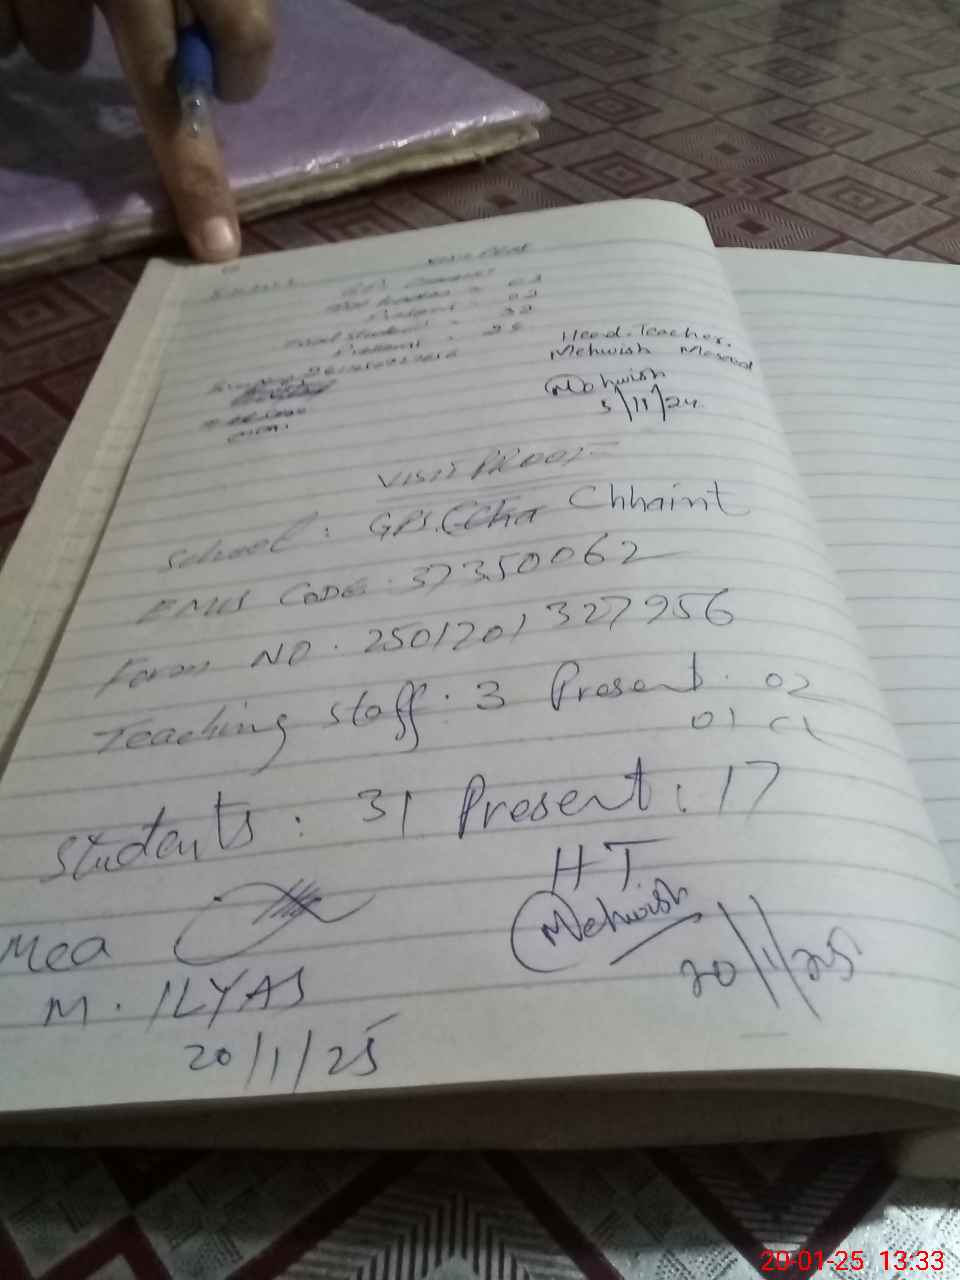 Present = 02
Total Students = 32
Present = 25
Head-Teacher.
Mehwish Masood
Mehwish
5/11/24
VISIT PROOF
School: GPS. Chhaint
EMIS CODE: 37350062
Form NO. 2501201327956
Teaching staff: 3 Present. 02
01 CL
Students: 31 Present: 17
HT
Mehwish
20/1/25
Mea
M. ILYAS
20/1/25
20-01-25 13:33